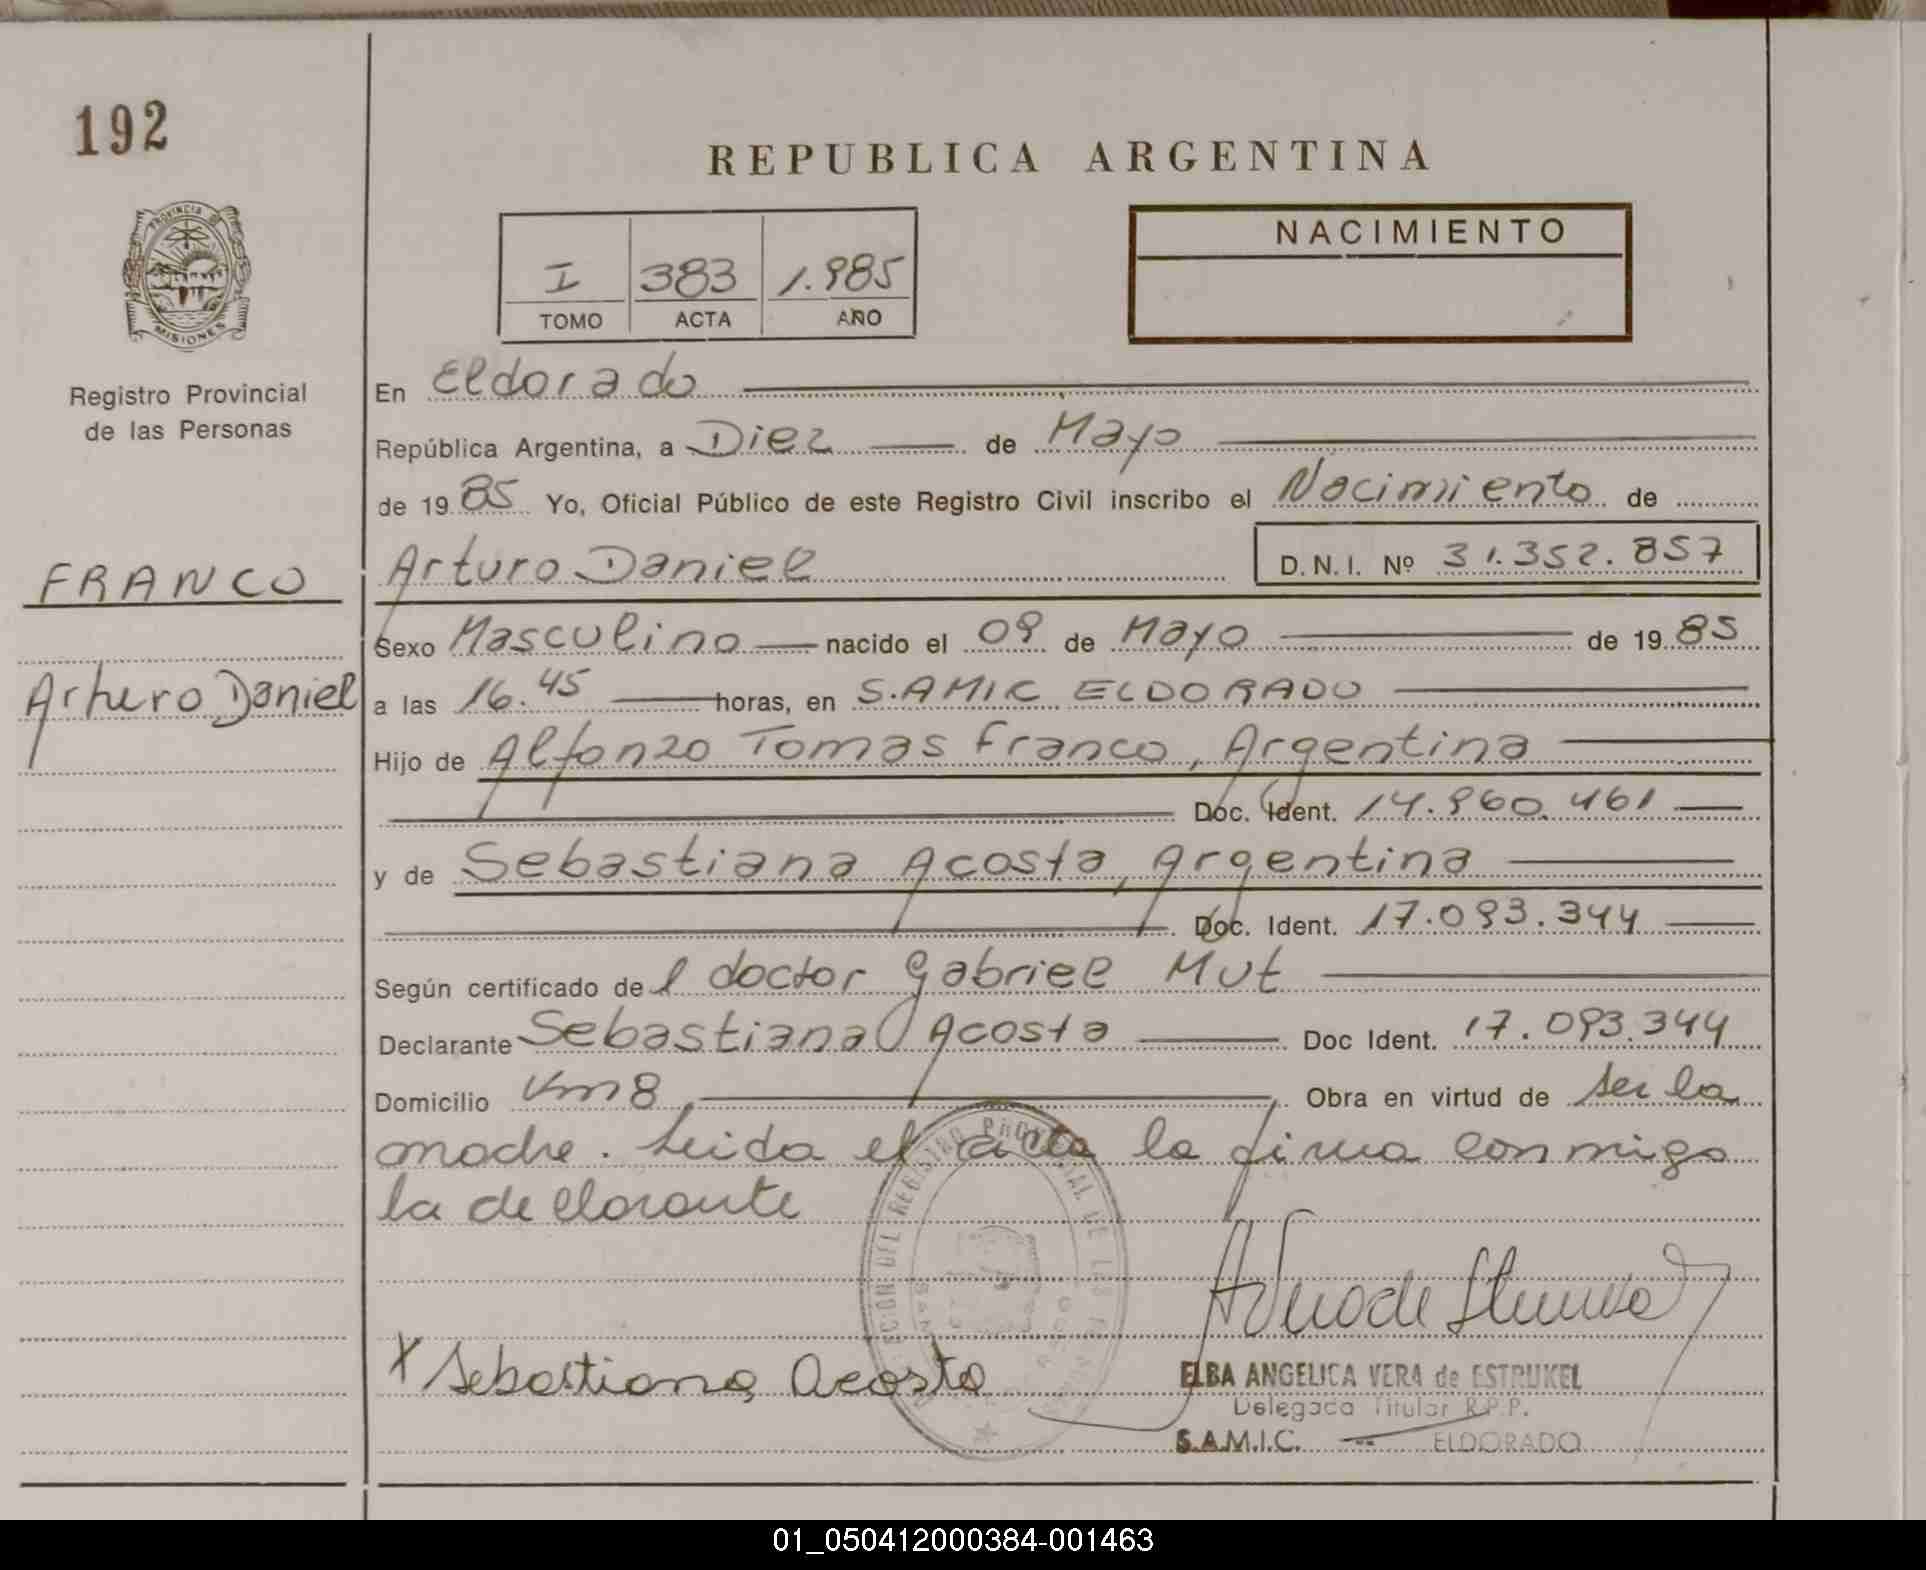 192
REPUBLICA ARGENTINA
PROVINCIA DE
MISIONES
Registro Provincial
de las Personas
I 383 1.985
TOMO ACTA AÑO
NACIMIENTO
En Eldorado
República Argentina, a Diez de Mayo
de 1985 Yo, Oficial Público de este Registro Civil inscribo el Nacimiento de
FRANCO
Arturo Daniel
Arturo Daniel D.N.I. Nº 31.352.857
Sexo Masculino nacido el 09 de Mayo de 1985
a las 16.45 horas, en S.AMIC ELDORADO
Hijo de Alfonzo Tomas Franco, Argentina
Doc. Ident. 14.960.461
y de Sebastiana Acosta, Argentina
Doc. Ident. 17.093.344
Según certificado del doctor Gabriel Mut
Declarante Sebastiana Acosta Doc Ident. 17.093.344
Domicilio Km 8, Obra en virtud de ser la
madre. Leida el acta la firma conmigo
la declarante
X Sebastiana Acosta
ELBA ANGELICA VERA de ESTRUKEL
Delegada Titular R.P.P.
S.A.M.I.C. -- ELDORADO
01_050412000384-001463